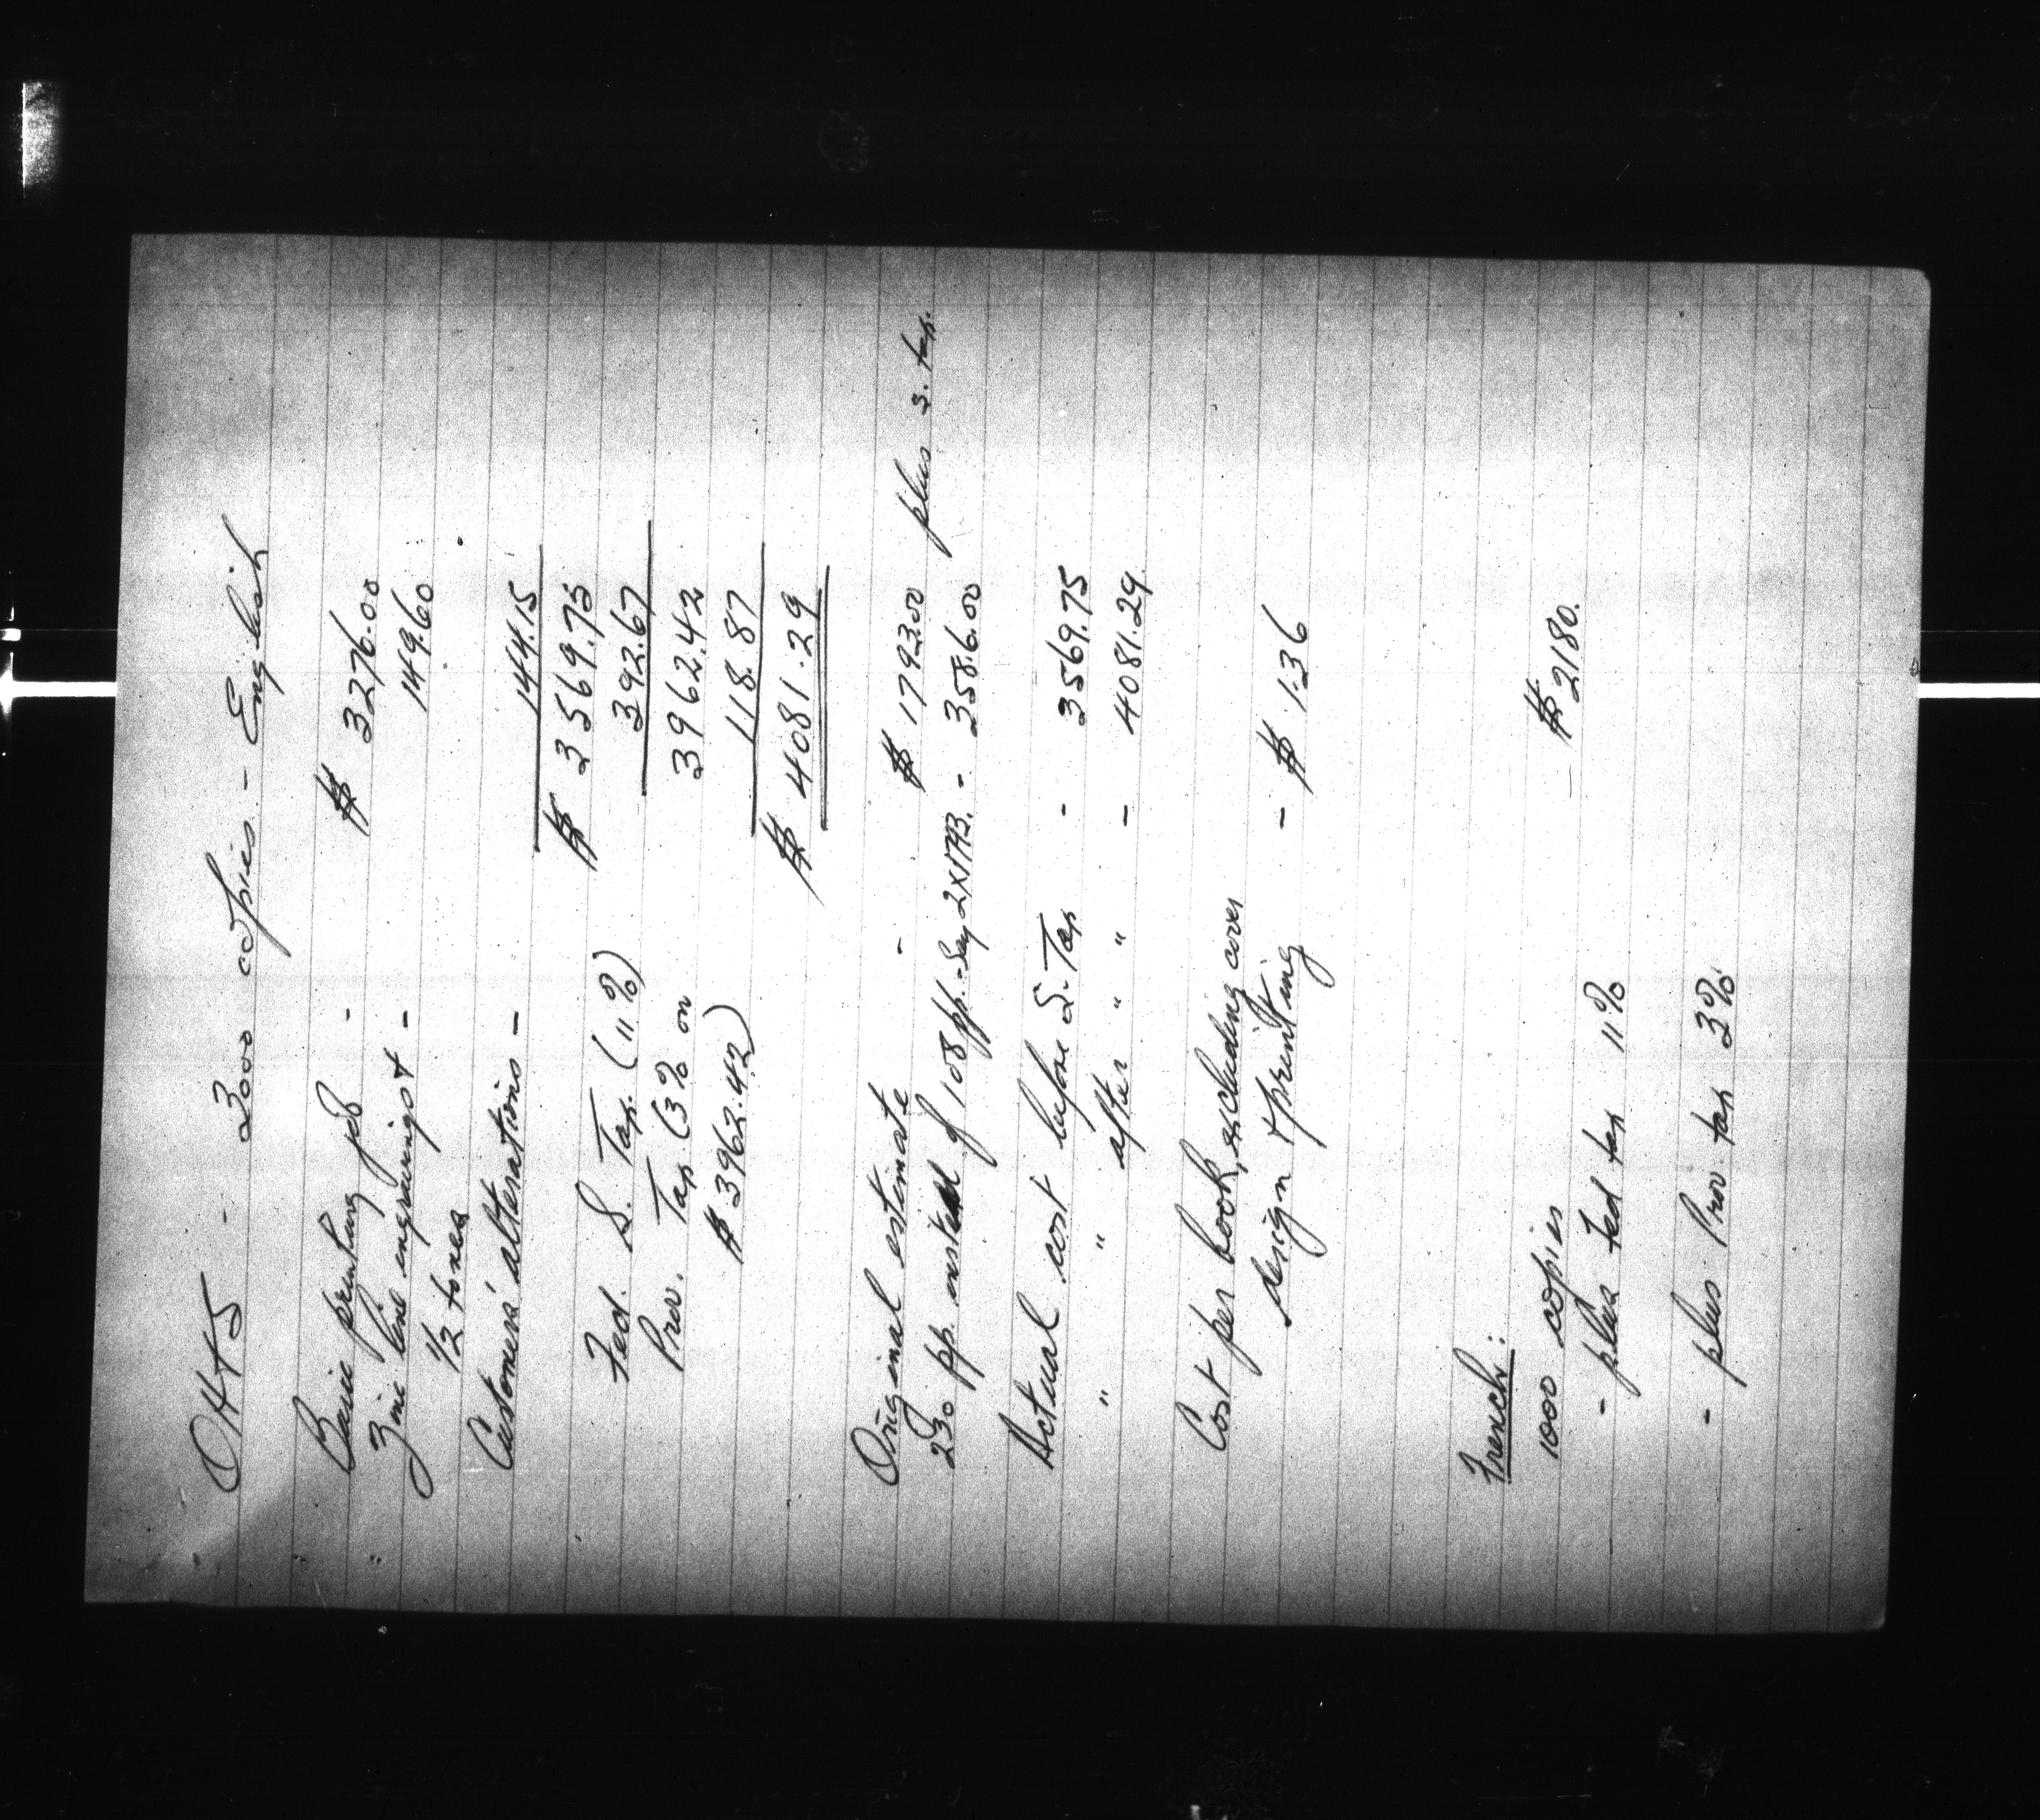 OHTS - 3000 copies - English
Basic printing job - $ 3276.00
Zinc line engravings + - 149.60
1/2 tones
Customers' alterations - 144.15
$ 3569.75
Fed. S. Tax. (11%) 392.67
Prov. Tax (3% on 3962.42
$ 3962.42) 118.87
$ 4081.29
Original estimate - $ 1793.00 plus S. tax.
230 pp. instead of 108 pp. - Say 2x1793. - 3586.00
Actual cost before S. Tax - 3569.75
" " after " " - 4081.29.
Cost per book, excluding cover
design & printing - $ 1.36
French:
1000 copies $ 2180.
- plus Fed tax 11%
- plus Prov. tax 3%